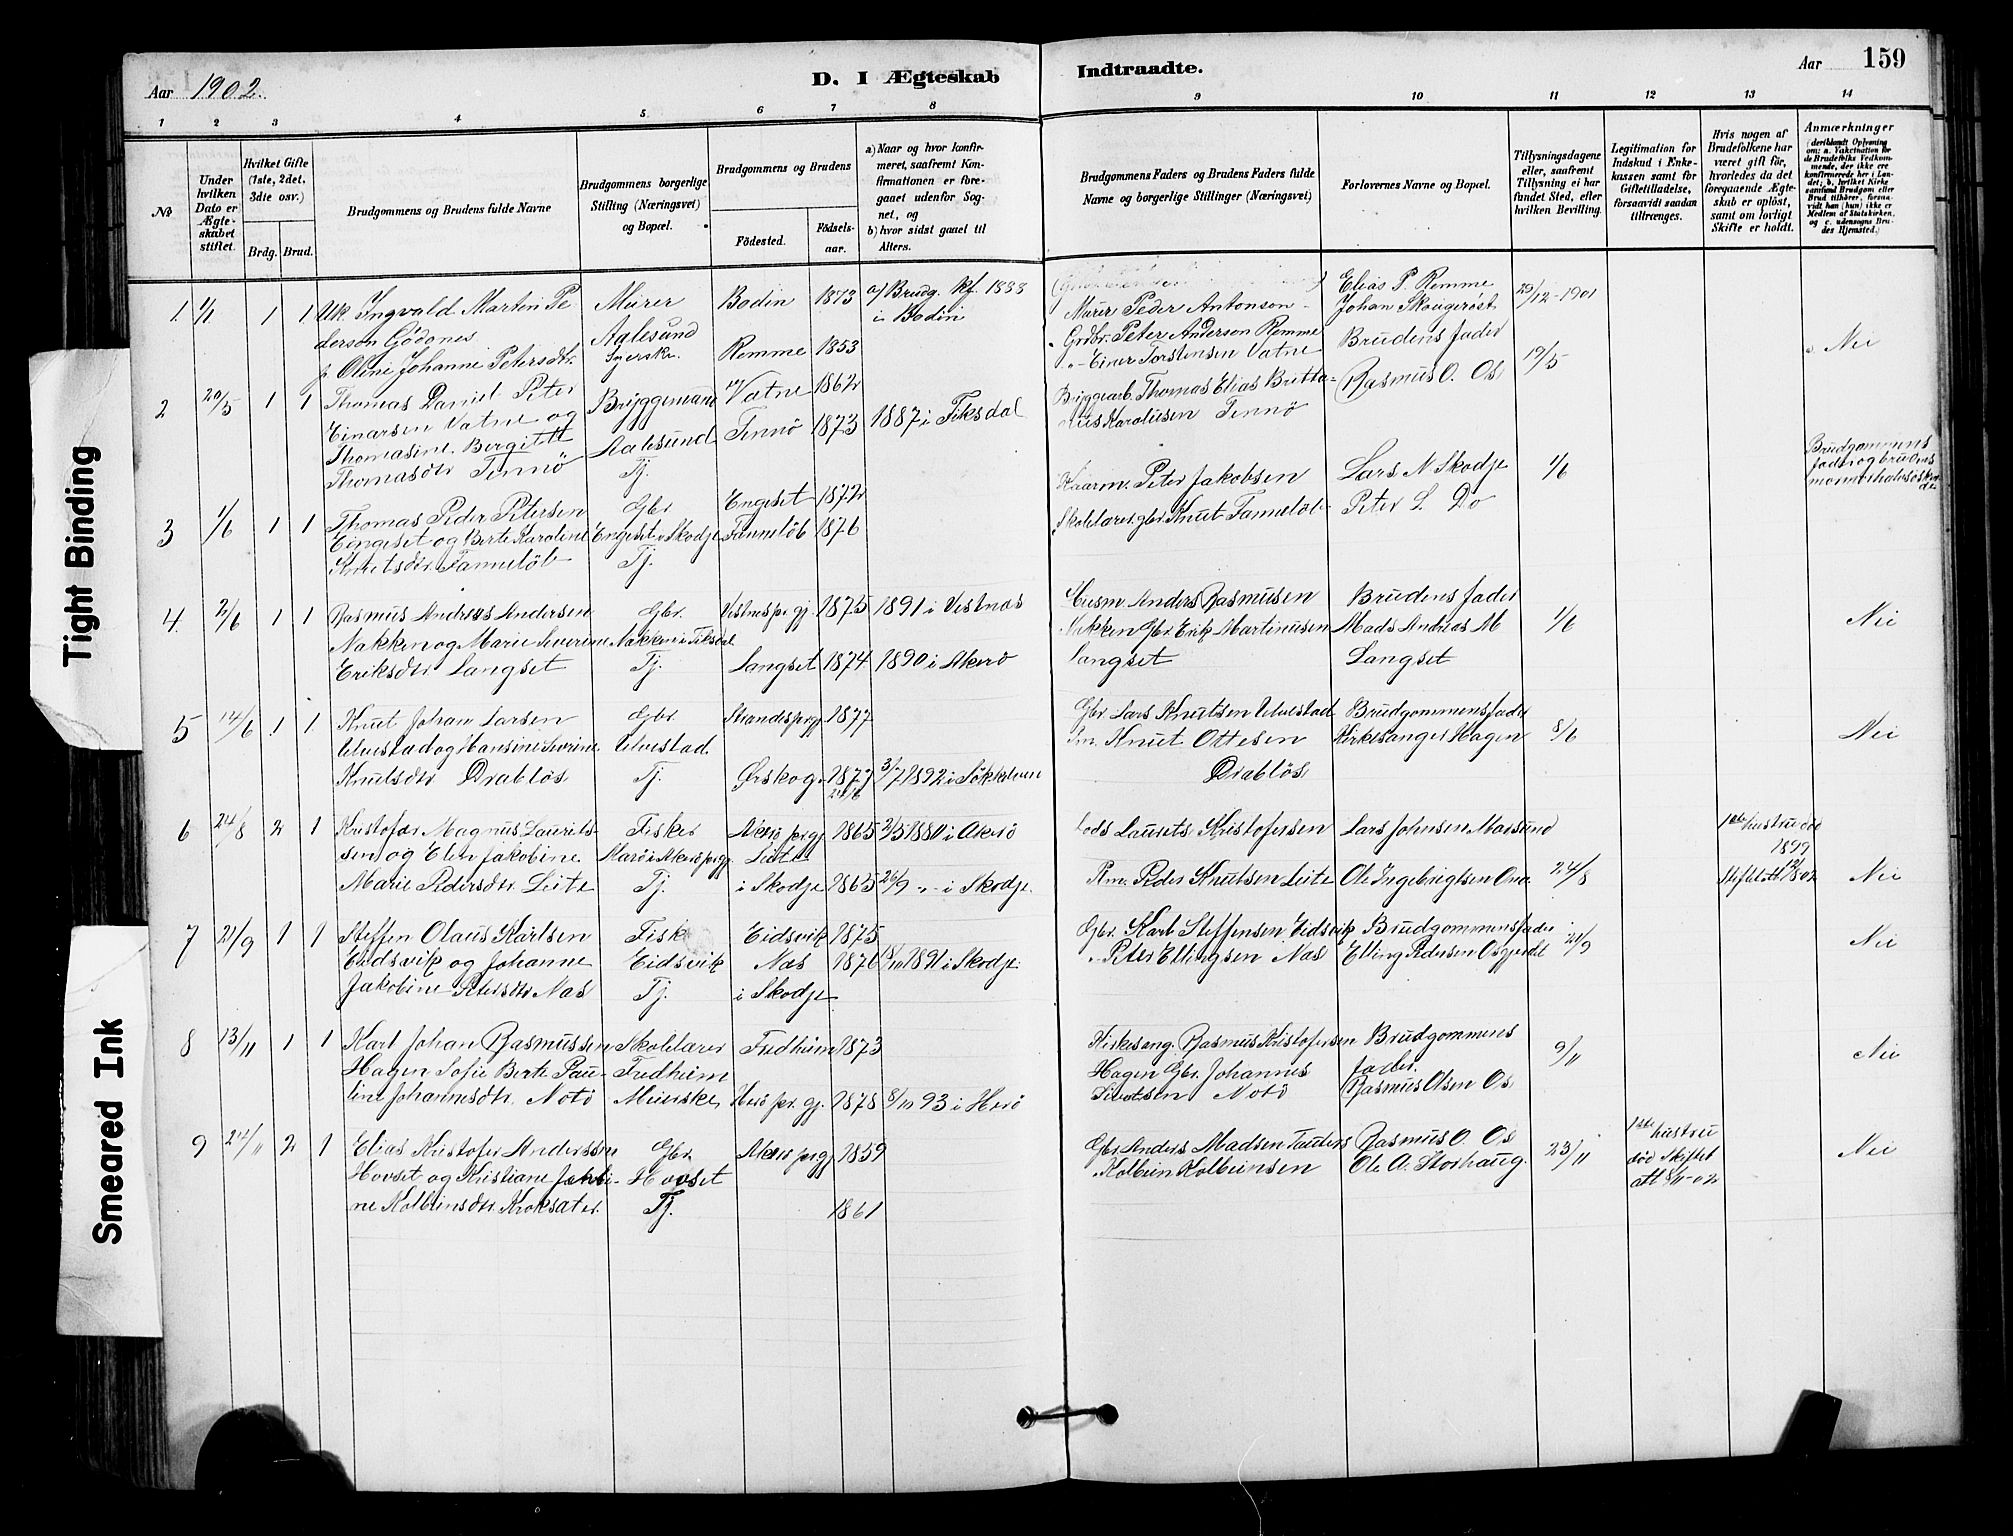 Aar 1902.
D. I Ægteskab
Indtraadte.
Aar
159
1 2 3 4 5 6 7 8
9 10 11 12 13 14
№
Under hvilken Dato er Ægteskabet stiftet.
Hvilket Gifte (1ste, 2det, 3die osv.)
Brdg. Brud.
Brudgommens og Brudens fulde Navne
Brudgommens borgerlige Stilling (Næringsvei) og Bopæl.
Brudgommens og Brudens
Födested.
Födselsaar.
a) Naar og hvor konfirmeret, saafremt Konfirmationen er foregaaet udenfor Sognet, og
b) hvor sidst gaaet til Alters.
Brudgommens Faders og Brudens Faders fulde Navne og borgerlige Stillinger (Næringsvei)
Forlovernes Navne og Bopæl.
Tillysningsdagene eller, saafremt Tillysning ei har fundet Sted, efter hvilken Bevilling.
Legitimation for Indskud i Enkekassen samt for Giftetilladelse, forsaavidt saadan tiltrænges.
Hvis nogen af Brudefolkene har været gift för, hvorledes da det foregaaende Ægteskab er oplöst, samt om lovligt Skifte er holdt.
Anmærkninger
1. 1/1 1 1 Uk. Ingvald Martin Pe- Murer Bodin 1873 a) Brudg. kf. 1888
derson Gödönes Aalesund i Bodin
p. Oline Johanne Petersdtr. Syerske. Remme 1853
Murer Peder Antonson
Grdbr. Peter Anderson Remme
Elias P. Remme
Johan Skougerøst
29/12-1901
Nei
2 20/5 1 1 Thomas Daniel Peter Bryggemand Vatne 1862
Einarsen Vatne og Aalesund Tennö 1873 1887 i Fiksdal
Thomasine Bergitte Tj.
Thomasdtr Tennö
Einer Torstensen Vatne
Bryggearb. Thomas Elias Britta-
nus Karolusen Tennö
Brudens fader
Rasmus O. Os
19/5
3 1/6 1 1 Thomas Peder Petersen Gbr. Engeset 1872
Engeset og Berte Karoline Engeset i Skodje Fanneløb 1876
Knutsdtr. Fanneløb Tj.
Kaarm. Peter Jakobsen
Skolelærer gbr. Knut Fanneløb
Lars N Skodje
Peter L. Do
1/6
Brudgommens
fader og brudens
mor
4. 2/6 1 1 Rasmus Andreas Andersen Gbr. Vestnes pr.gj. 1875 1891 i Vestnæs
Nakken og Marie Severine Nakken i Fiksdal
Eriksdtr Langset Tj. Langset 1874 1890 i Akerö
Husm. Anders Rasmusen
Nakken Gbr. Erik Martinusen
Langset
Brudens fader
Mads Andreas M
Langset
1/6
Nei
5 14/6 1 1 Knut Johan Larsen Gbr. Strandes pr.gj. 1877
Ulvestad og Hansine Severine Ulvestad.
Knutsdtr Drabløs Tj. Ørskog 1877 3/7 1892 i Sökkelven
Gbr. Lars Knutsen Ulvestad
Knut Ottesen
Drabløs
Brudgommens fader
Kirkesanger Hagen
8/6
Nei
6 24/8 2 1 Kristofer Magnus Laurits- Fisker Akerö pr.gj. 1865 2/5 1880 i Akerö
sen og Elen Jakobine Leite
Marie Pedersdtr Leite Tj. i Skodje 1865 26/9 i Skodje.
Lods Laurets Kristofersen
Peder Knutsen Leite
Lars Johnsen Morsund
Ole Ingebrigtsen Ona
24/8
1ste hustru död
1899
Nei
7 21/9 1 1 Steffen Olaus Karlsen Fisk Eidsvik 1875
Eidsvik og Johanne Eidsvik Næs 1876 1891 i Skodje.
Jakobine Petersdtr Næs Tj. i Skodje
Gbr. Karl Steffensen Eidsvik
Peter Ellingsen Næs
Brudgommens fader
Elling Pedersen Osgjerdet
21/9
Nei
8 13/11 1 1 Karl Johan Rasmussen Skolelærer Fredheim 1873
Hagen Sofie Berte Pau- Fredheim
line Johannesdtr. Notö Meierske Herö pr.gj. 1878 8/10 93 i Herö
Kirkesang. Rasmus Kristofersen
Hagen Gbr. Johannes
Sivertsen Notö
Brudgommens
fader.
Rasmus Olsen Os
9/11
Nei
9 24/11 2 1 Elias Kristofer Anderssen Gbr. Akerö pr.gj. 1859
Hovset og Kristiane Jakobi- Hovset
ne Kolbeinsdtr. Kroksæter. Tj. 1861
Gbr. Anders Madsen
Kolbein Kolbeinsen
Rasmus O. Os
Ole A. Storhaug.
23/11
1ste hustru
död Skiftet
Nei
Tight Binding
Smeared Ink